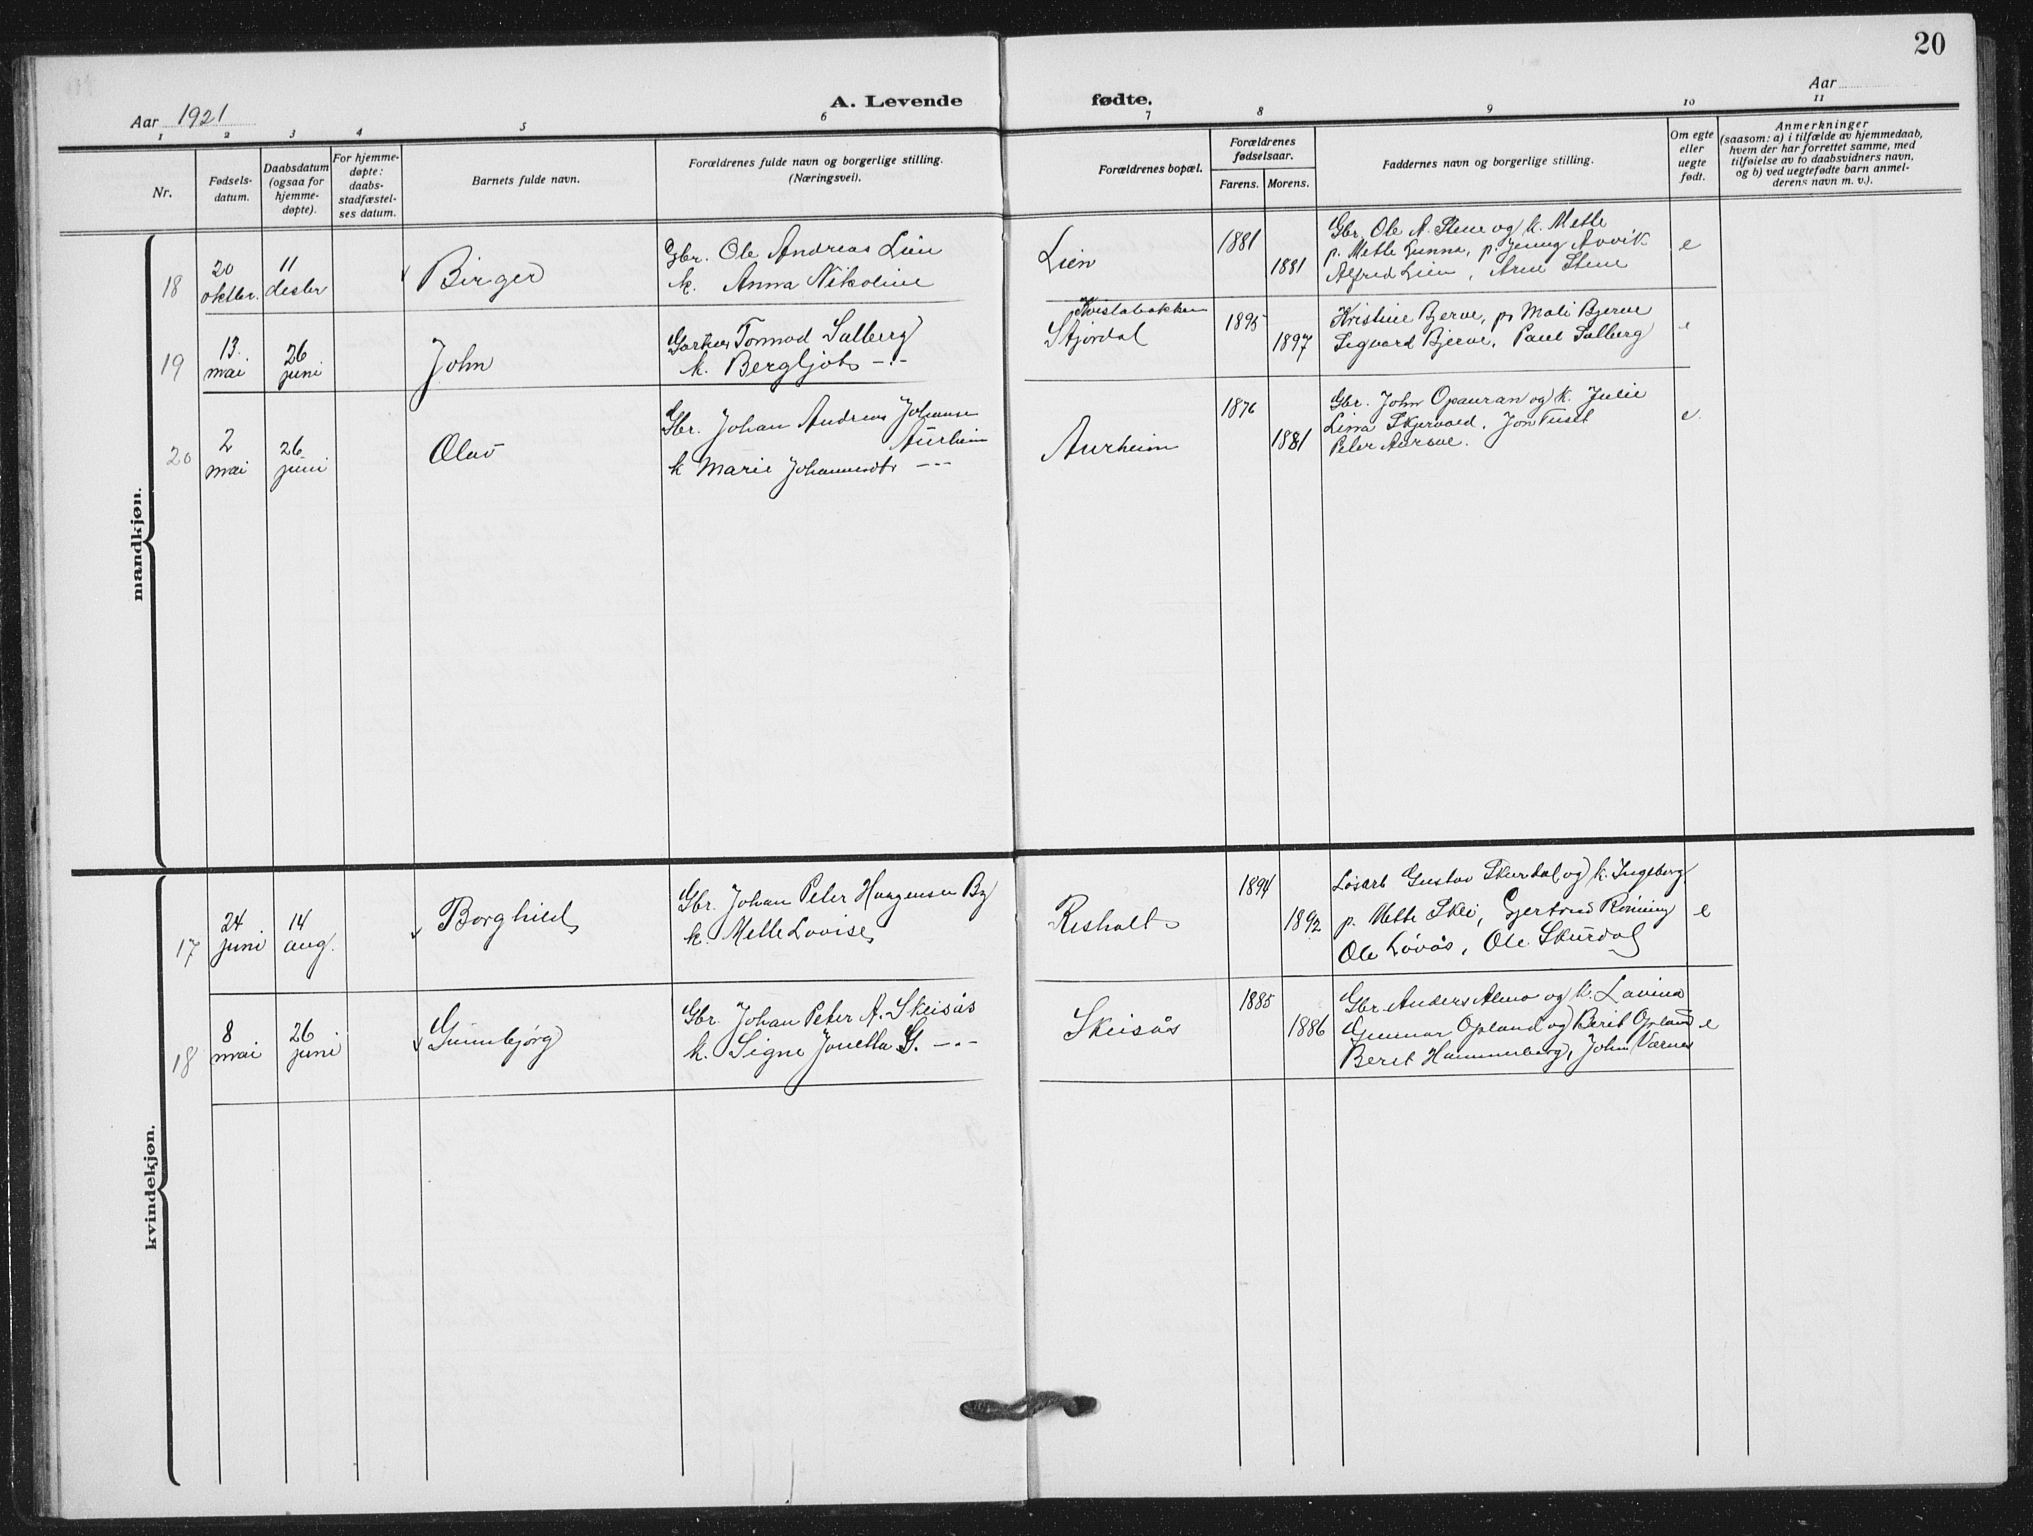 20
Aar 1921
A. Levende fødte.
Aar
1 2 3 4 5 6 7 8 9 10 11
Nr.
Fødsels-
datum.
Daabsdatum
(ogsaa for
hjemme-
døpte).
For hjemme-
døpte:
daabs-
stadfæstel-
ses datum.
Barnets fulde navn.
Forældrenes fulde navn og borgerlige stilling.
(Næringsvei).
Forældrenes bopæl.
Forældrenes
fødselsaar.
Farens. Morens.
Faddernes navn og borgerlige stilling.
Om egte
eller
uegte
født.
Anmerkninger
(saasom: a) i tilfælde av hjemmedaab,
hvem der har forrettet samme, med
tilføielse av to daabsvidners navn,
og b) ved uegtefødte barn anmel-
derens navn m. v.).
mandkjøn.
18
20
oktbr.
11
desbr
Birger
Gbr. Ole Andreas Lien
k. Anna Nikoline
Lien
1881
1881
Gbr. Ole A. Stene og k. Mette
p. Mette Gunna, p. Jenny Avvik
Alfred Lien, Arne Stene
e
19
13.
mai
26
juni
John
Gartner Tormod Salberg
k. Bergljot -"-
Kvislabakken
Stjørdal
1895
1897
Kristine Bjerve, p. Mali Bjerve
Sigvard Bjerve, Paul Salberg
e
20
2
mai
26
juni
Olav
Gbr. Johan Andreas Johansen
Aurheim
k Marie Johannesdtr ---
Aurheim
1876
1881
Gbr. John Opauran og k. Julie
Lina Skjervold, Jon Fuset
Peter Aursve.
e.
kvindekjøn.
17
24
juni
14
aug.
Borghild
Gbr. Johan Peter Haagensen By
k. Mette Lovise
Resholt
1894
1892
Løsarb Gustav Skurdal og k. Ingeborg,
p. Mette Skei, Gjertrud Rønning
Ole Løvås, Ole Skurdal
e
18
8
mai
26
juni
Gunnbjørg
Gbr. Johan Peter A. Skeisås
k. Signe Jonetta G. -"-
Skeisås
1885
1886
Gbr Anders Almo og k. Lavina
Gunnar Opland og Berit Opland
Beret Hammerberg, John Værnes
e